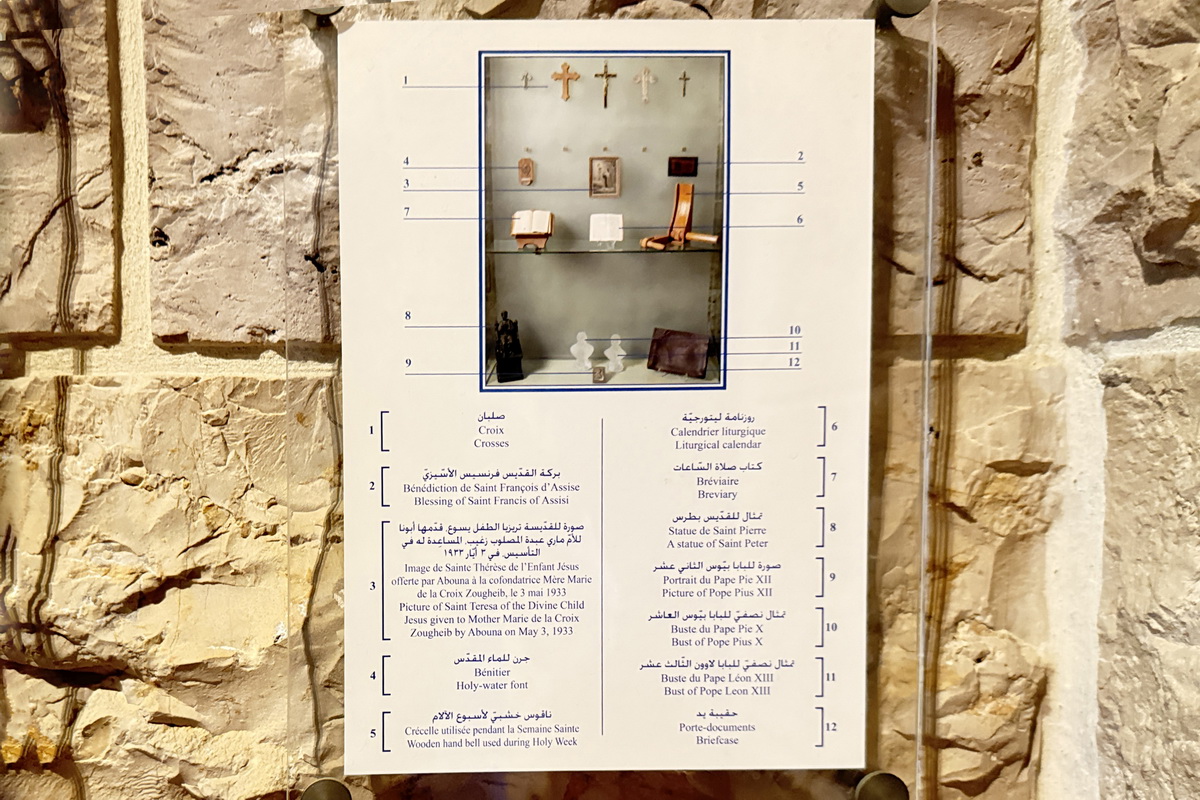 1
4
3
7
8
9
2
5
6
10
11
12
1
صلبان
Croix
Crosses
2
بركة القدّيس فرنسيس الأسّيزيّ
Bénédiction de Saint François d'Assise
Blessing of Saint Francis of Assisi
3
صورة للقدّيسة تريزيا الطفل يسوع، قدّمها أبونا
للأمّ ماري عبدة المصلوب زغيب، المساعِدة له في
التأسيس، في ٣ أيّار ١٩٣٣
Image de Sainte Thérèse de l'Enfant Jésus
offerte par Abouna à la cofondatrice Mère Marie
de la Croix Zougheib, le 3 mai 1933
Picture of Saint Teresa of the Divine Child
Jesus given to Mother Marie de la Croix
Zougheib by Abouna on May 3, 1933
4
جرن للماء المقدّس
Bénitier
Holy-water font
5
ناقوس خشبيّ لأسبوع الآلام
Crécelle utilisée pendant la Semaine Sainte
Wooden hand bell used during Holy Week
روزنامة ليتورجيّة
6
Calendrier liturgique
Liturgical calendar
كتاب صلاة السّاعات
7
Bréviaire
Breviary
تمثال للقدّيس بطرس
8
Statue de Saint Pierre
A statue of Saint Peter
صورة للبابا بيّوس الثاني عشر
9
Portrait du Pape Pie XII
Picture of Pope Pius XII
تمثال نصفيّ للبابا بيّوس العاشر
10
Buste du Pape Pie X
Bust of Pope Pius X
تمثال نصفيّ للبابا لاوون الثّالث عشر
11
Buste du Pape Léon XIII
Bust of Pope Leon XIII
حقيبة يد
12
Porte-documents
Briefcase